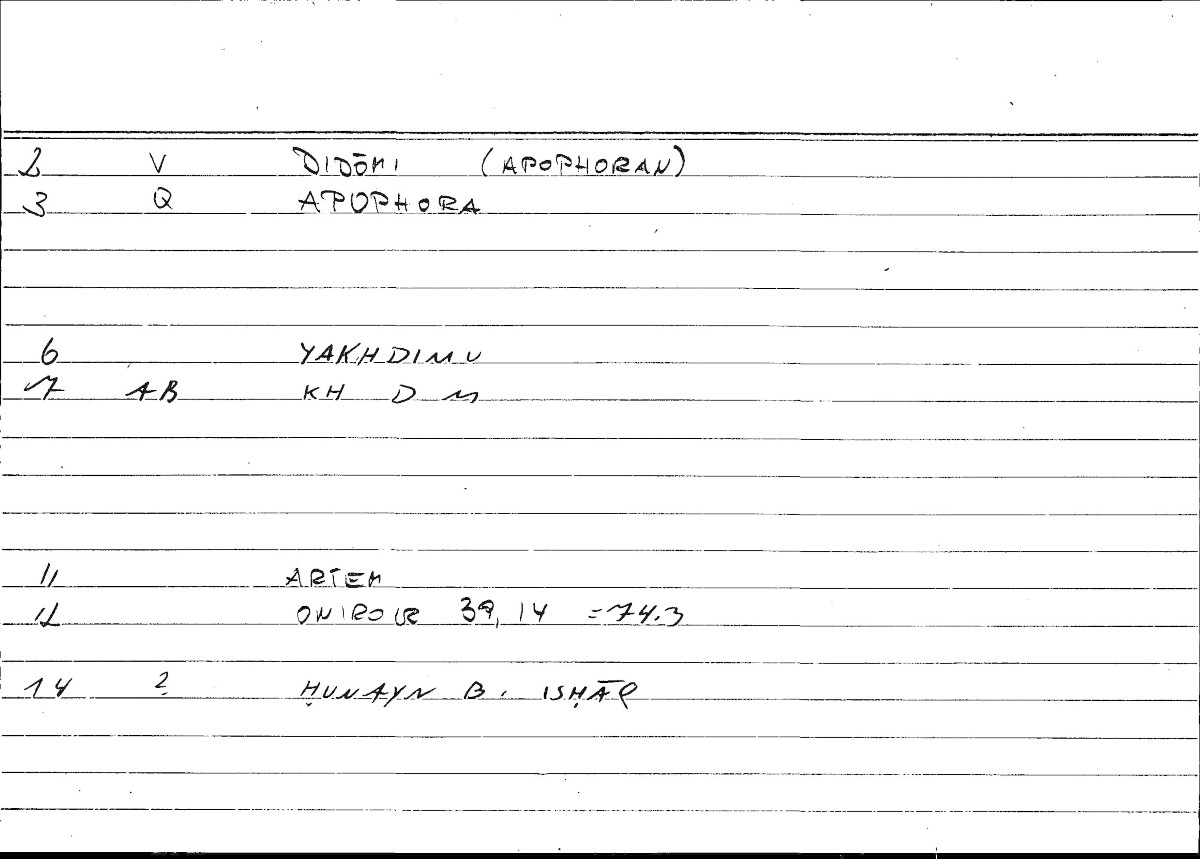 2 V DIDŌMI (APOPHORAN)
3 Q APOPHORA
6 YAKHDIMU
7 AB KH D M
11 ARTEM
12 ONIROCR 39,14 =74.3
14 2 ḤUNAYN B. ISḤĀQ